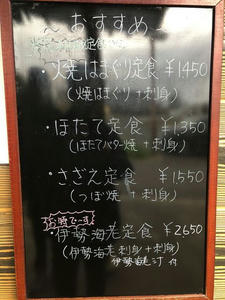 おすすめ
・焼はまぐり定食 ¥1450
(焼はまぐり+刺身)
・ほたて定食 ¥1,350
(ほたてバター焼+刺身)
・さざえ定食 ¥1,550
(つぼ焼+刺身)
・伊勢海老定食 ¥2650
(伊勢海老刺身+刺身)
伊勢海老汁付